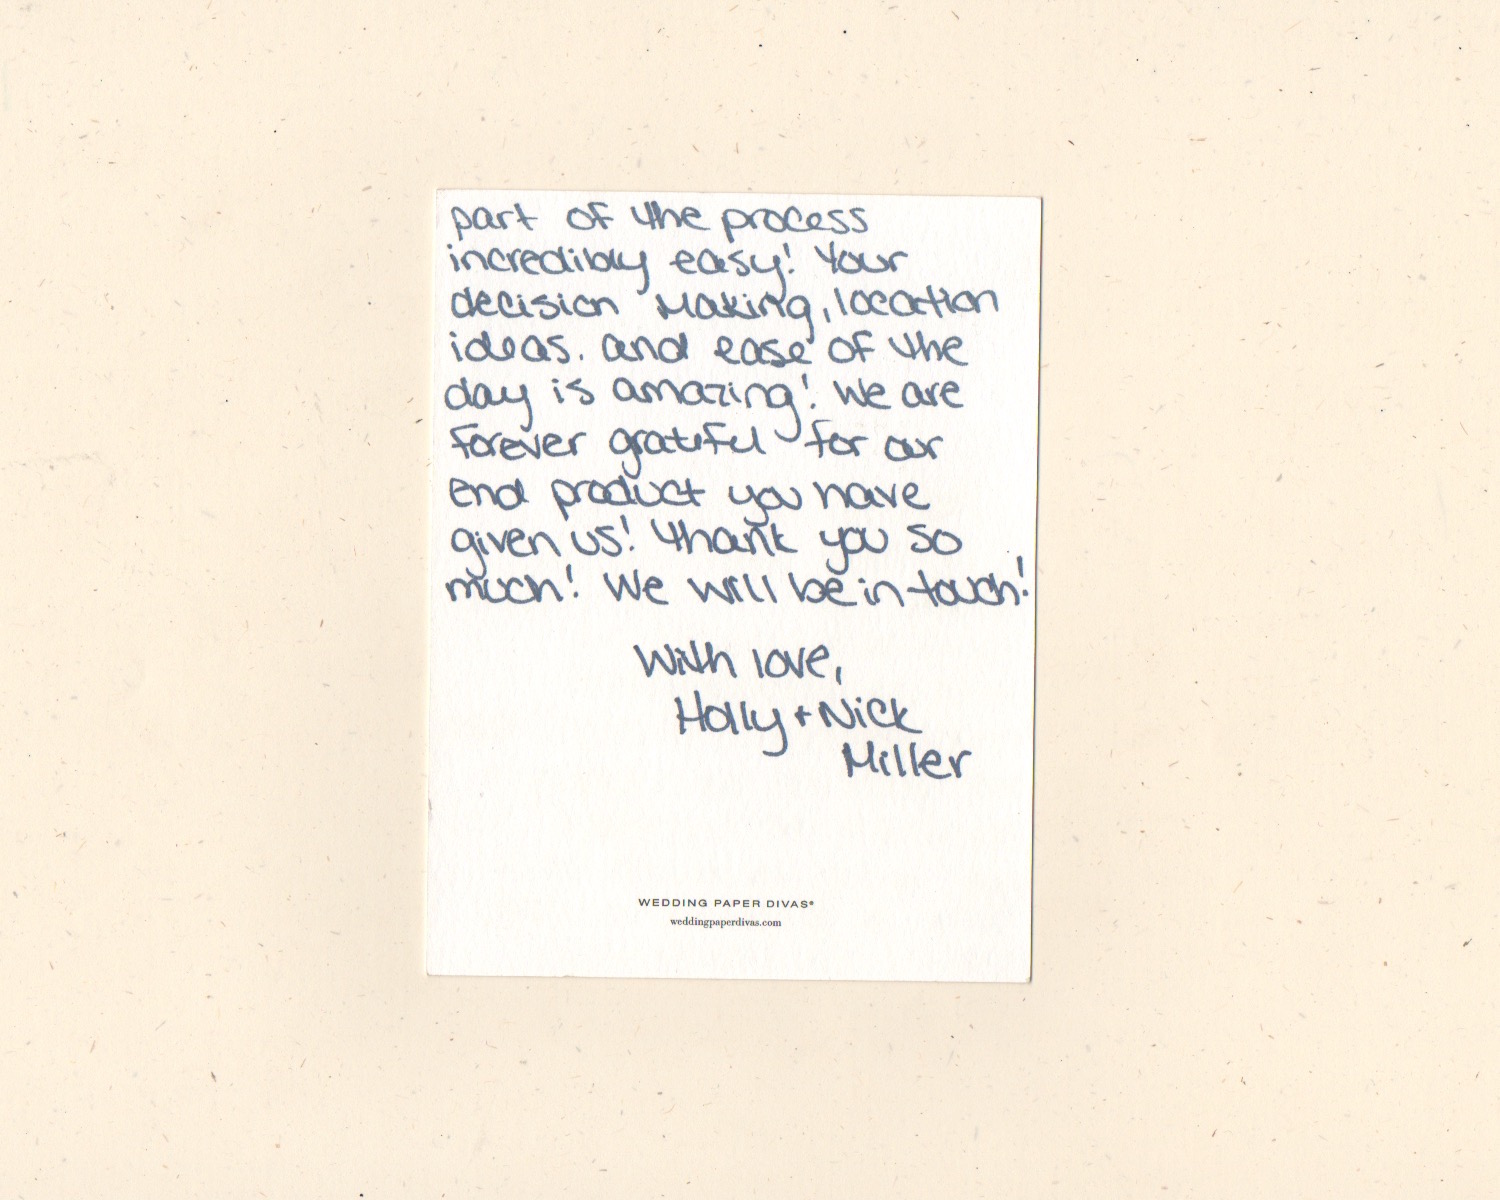 part of the process
incredibly easy! Your
decision making, location
ideas. and ease of the
day is amazing! We are
forever grateful for our
end product you have
given us! Thank you so
much! We will be in touch!
With love,
Holly + Nick
Miller
WEDDING PAPER DIVAS®
weddingpaperdivas.com